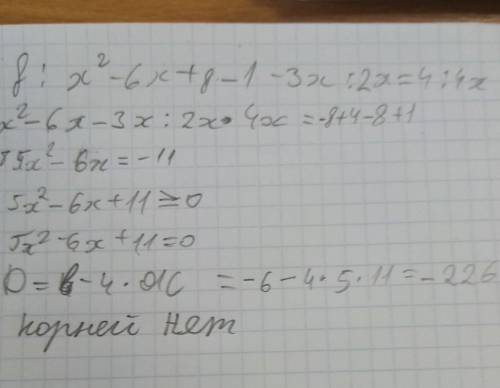 8 : x² - 6x + 8 - 1 - 3x : 2x = 4 : 4x
x² - 6x - 3x : 2x • 4x = -8+4-8+1
5x² - 6x = -11
5x² - 6x + 11 = 0
5x² - 6x + 11 = 0
D = b - 4 · ac = -6 - 4 · 5 · 11 = -226
корней нет